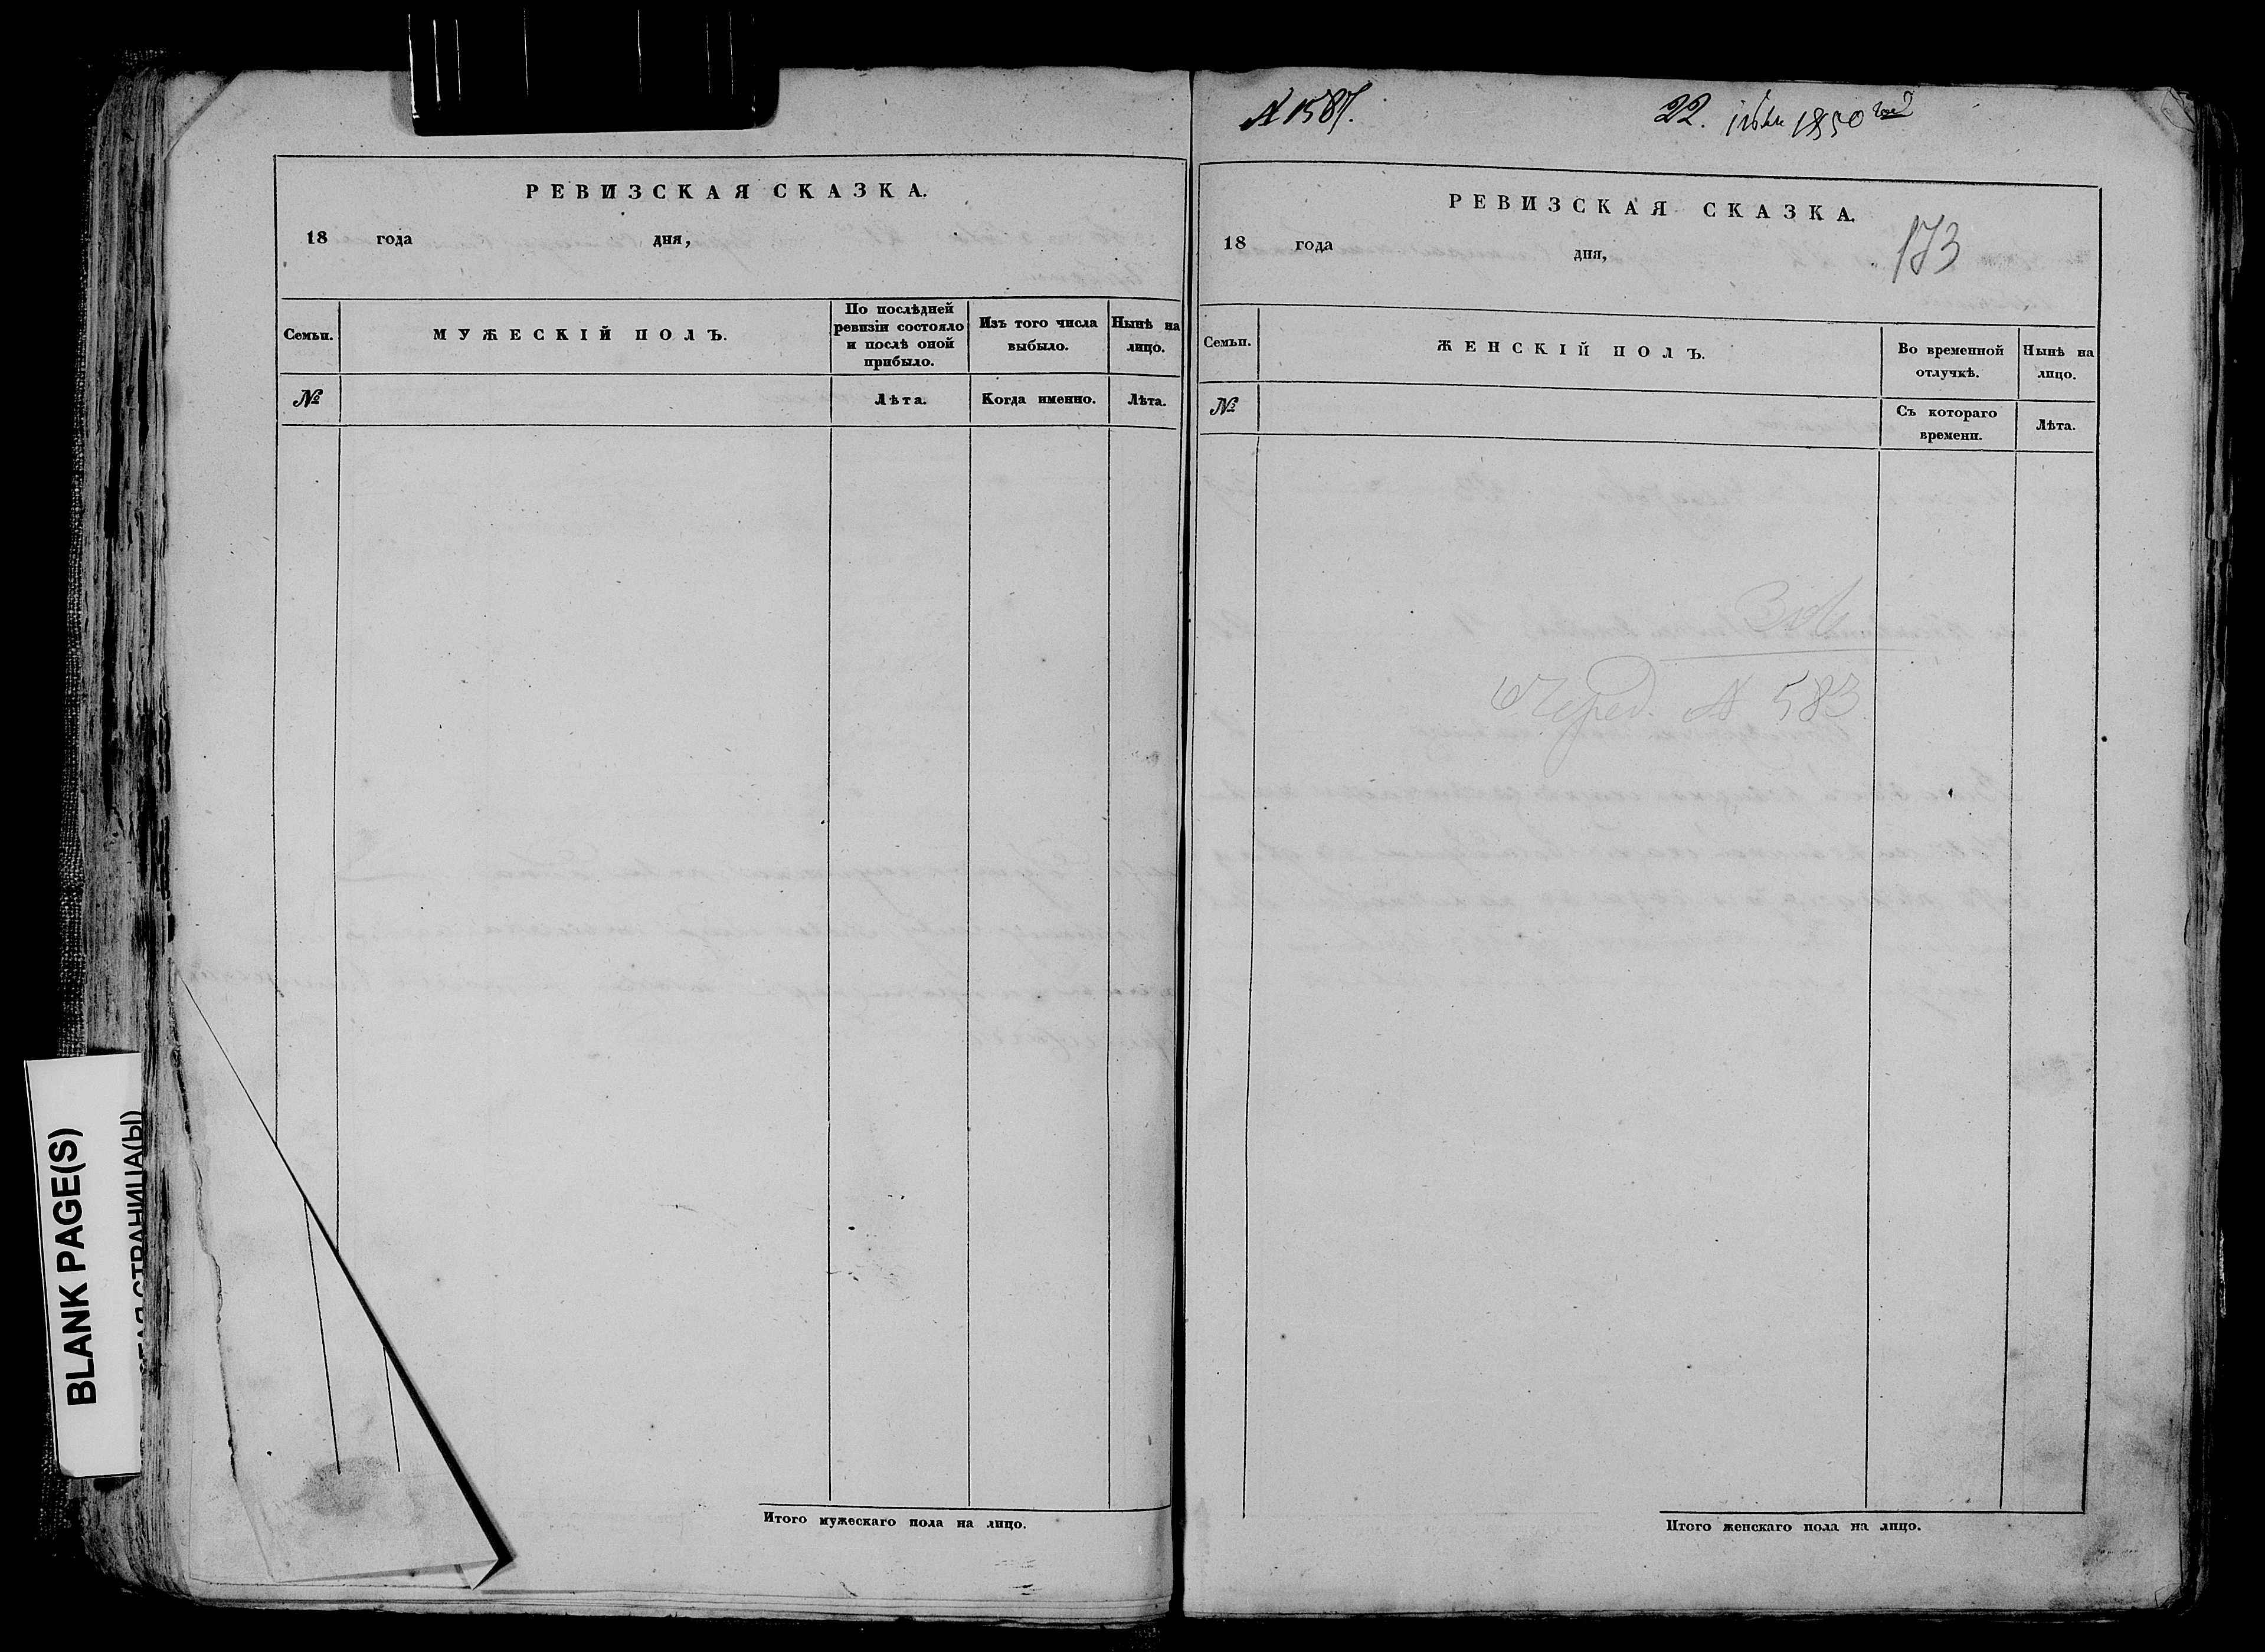 РЕВИЗСКАЯ СКАЗКА.
18 года дня,
Семьи.
МУЖЕСКІЙ ПОЛЪ.
По послѣдней
ревизіи состояло
и послѣ оной
прибыло.
Изъ того числа
выбыло.
Нынѣ на
лицо.
№
Лѣта.
Когда именно.
Лѣта.
Итого мужескаго пола на лицо.
№ 1587.
22. 1850 год
РЕВИЗСКАЯ СКАЗКА.
18 года дня,
173
Семьи.
ЖЕНСКІЙ ПОЛЪ.
Во временной
отлучкѣ.
Нынѣ на
лицо.
№
Съ котораго
времени.
Лѣта.
№ 583
Итого женскаго пола на лицо.
BLANK PAGE(S)
СТРАНИЦА(Ы)